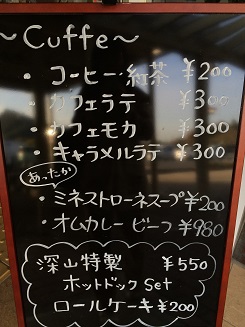 ~Cuffe~
・コーヒー・紅茶 ¥200
・カフェラテ ¥300
・カフェモカ ¥300
・キャラメルラテ ¥300
あったか
・ミネストローネスープ ¥200
・オムカレービーフ ¥980
深山特製 ¥550
ホットドック Set
ロールケーキ ¥200